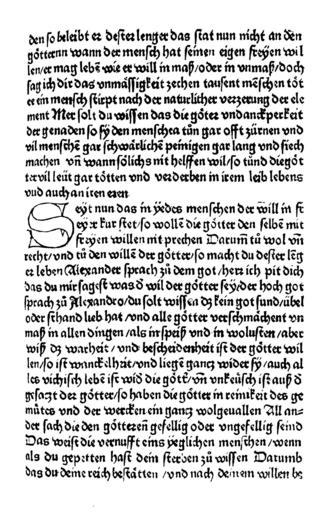 den so beleibt er dester lenger das stat nun nicht an den
göttern wann der mensch hat seinen eigen freyen wil
len/er mag lebē wie er will in maß/oder in vnmaß/doch
sag ich dir das vnmässigkeit zechen tausent mēschen töt
er ein mensch stirpt nach der naturlicher verzerung der ele
ment Mer solt du wissen das die götter vndanckperkeit
der genaden so sy den menschen tün gar offt zürnen vnd
vil menschē gar schwärlichē peinigen gar lang vnd siech
machen vn̄ wann sölichs nit helffen wil/so tünd die göt
ter vil leüt gar tötten vnd verderben in irem leib lebens
vnd auch an iren eren
Seyt nun das in yedes menschen der will in fr
eyer kur stet/so wollē die götter den selbē mit
freyen willen nit prechen Darum̄ tü wol vn̄
recht/vnd tü den willē der götter/so macht du dester lēg
er leben Alexander sprach zů dem got/herz ich pit dich
das du mir sagest was d̄ wil der götter sey/der hoch got
sprach zů Alexandro/du solt wissen dz kein got sund/übel
oder sthand lieb hat/vnd alle götter verschmächent vn
maß in allen dingen/als in speiß vnd in wolusten/aber
wiß dz warheit/vnd bescheidenheit ist der götter wil
len/so ist wanckelheit/vnd liegē gancz wider sy/auch al
les vichisch lebē ist wid̄ die göttē/vn̄ vnkeüsch ist auß d̄
gesaczt der götter/so haben die götter in reinikeit des ge
mütes vnd der wercken ein gancz wolgeuallen All an-
der sach die den götteren gefellig oder vngefellig seind
Das weist die vernufft eins yeglichen menschen/wenn
als du gepetten hast dein sterben zů wissen Darumb
das du deine reich bestätten/vnd nach deinem willen be